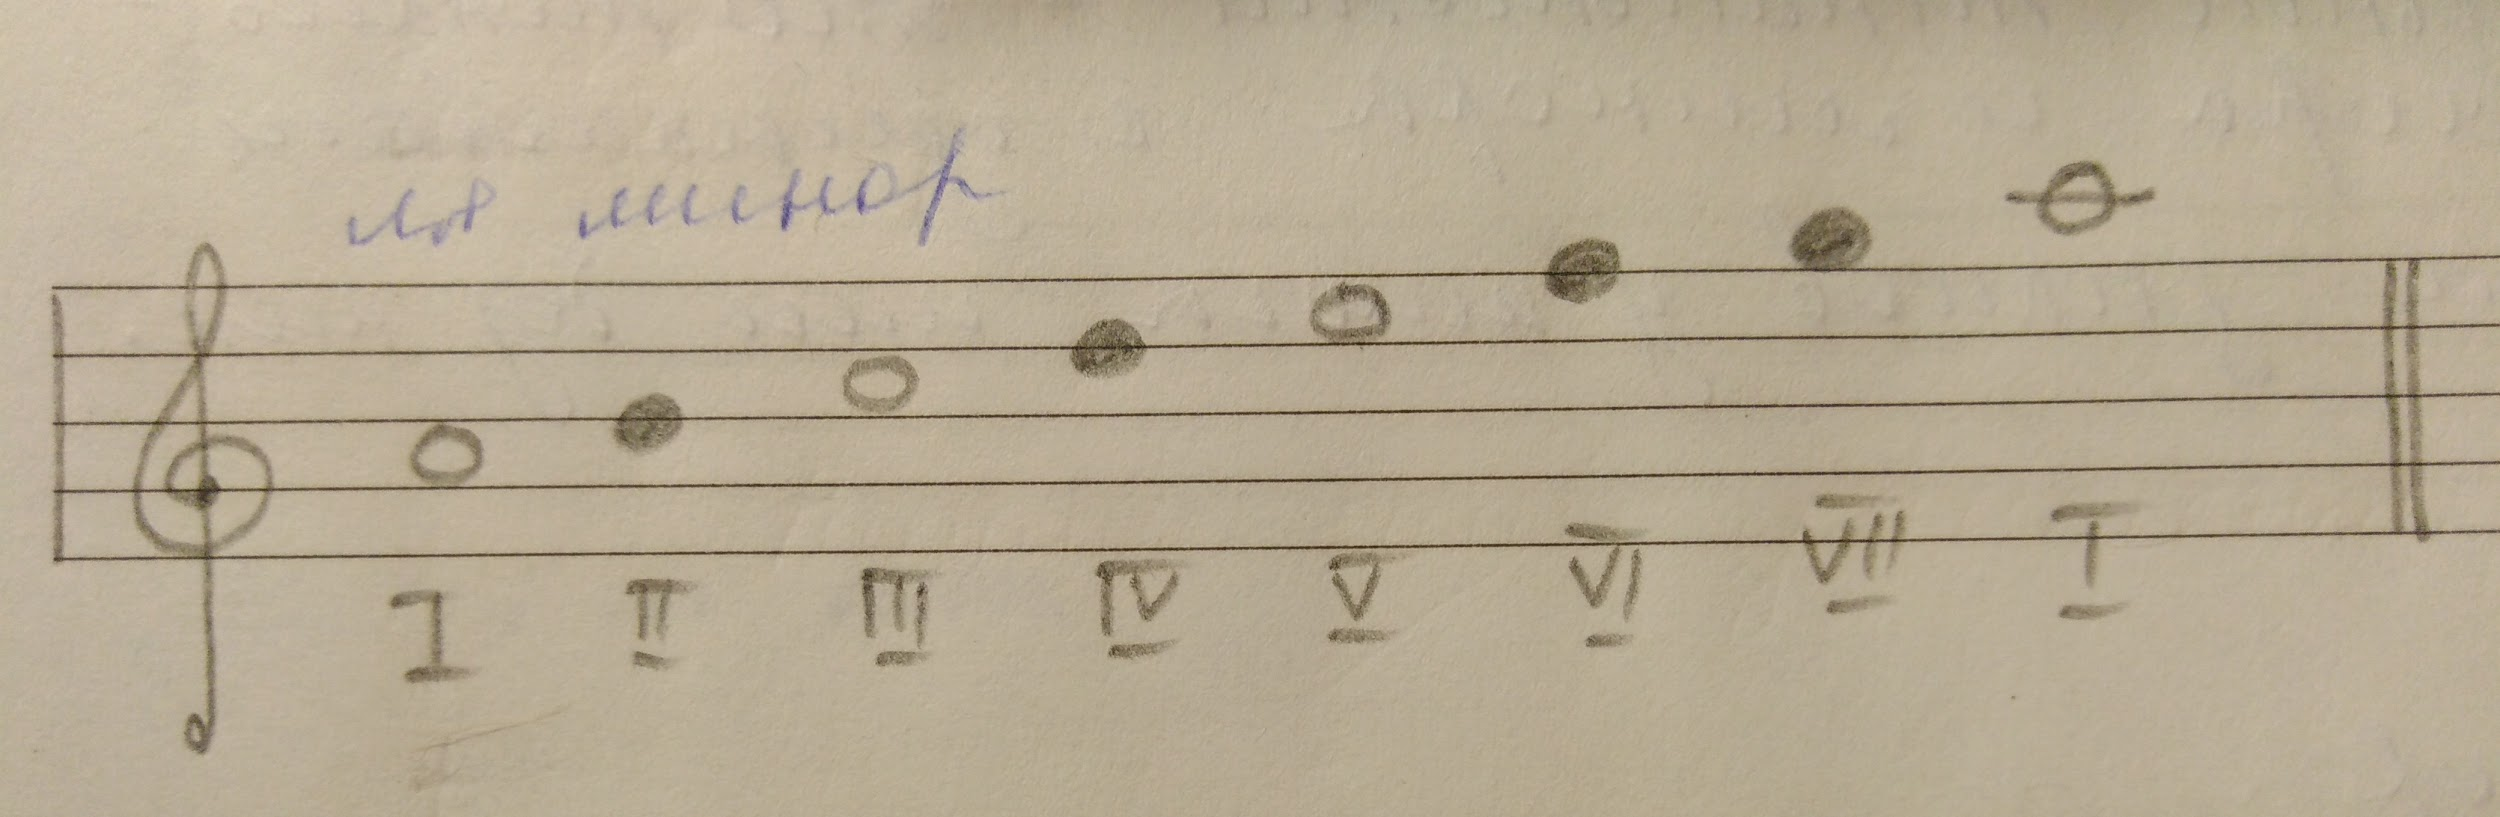 ля минор
I II III IV V VI VII I